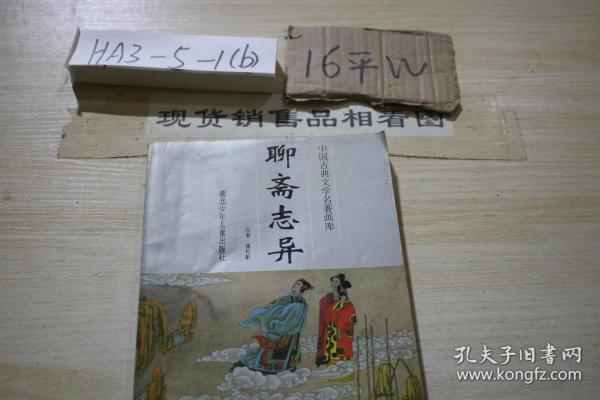 HA3-5-1(b)
16平W
现货销售品相看图
中国古典文学名著画库
聊斋志异
原著 蒲松龄
湖北少年儿童出版社
孔夫子旧书网
www.kongfz.com